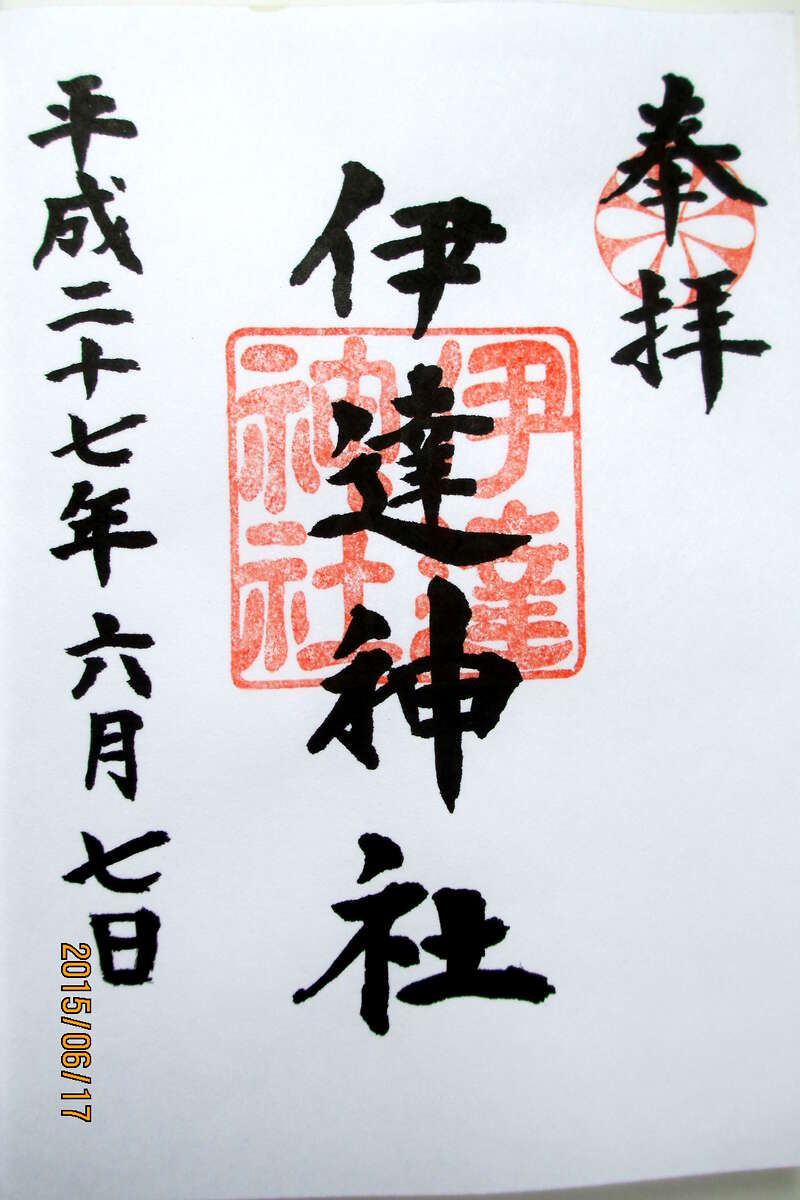 奉拝
伊達神社
伊達
神社
平成二十七年六月七日
2015/06/17